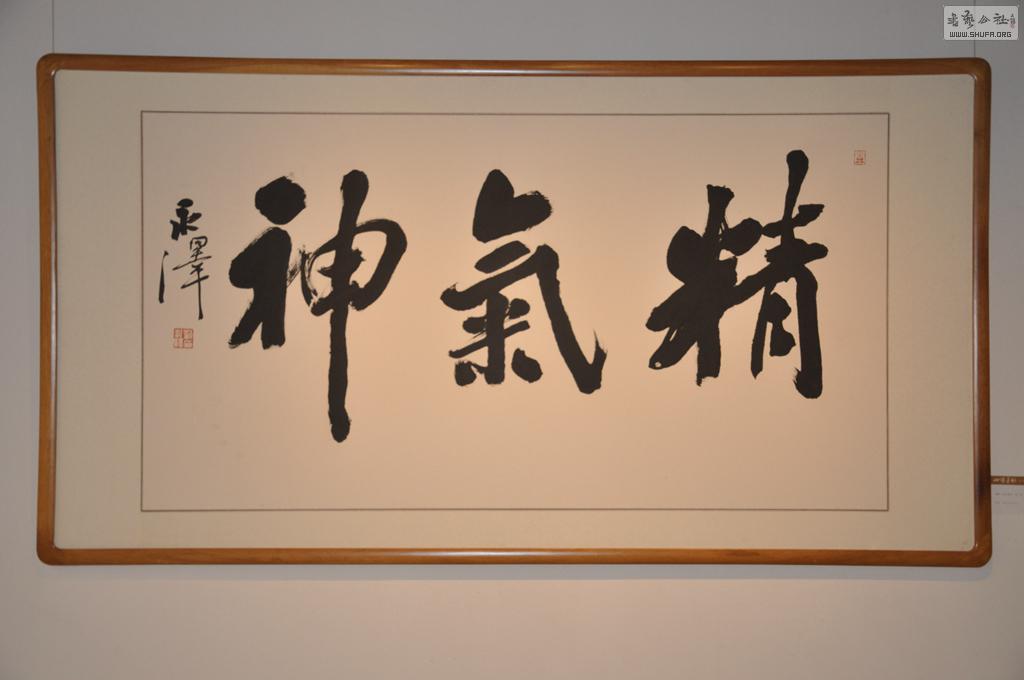 精氣神
永澤
書藝公社
WWW.SHUFA.ORG